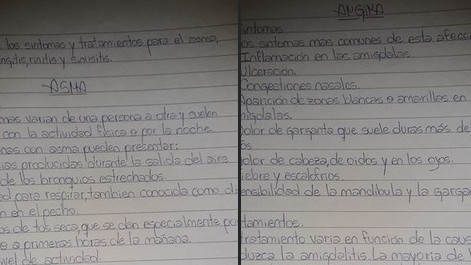 los sintomas y tratamientos para el asma,
rinitis y sinusitis.
ASMA
varian de una persona a otra y suelen
con la actividad fisica o por la noche.
con asma pueden presentar:
producidas durante la salida del aire
de los bronquios estrechados.
para respirar, tambien conocida como
en el pecho.
de tos seca, que se dan especialmente por
a primeras horas de la mañana.
de actividad.
ANGINA
sintomas
sintomas mas comunes de esta
Inflamación en las amigdalas.
Ulceración.
Congestiones nasales.
Aparición de zonas blancas o amarillas en
Dolor de garganta que suele duras más de
Dolor de cabeza, de oidos y en los ojos.
Fiebre y escalofrios.
sensibilidad de la mandibula y la
tratamiento varia en función de la
la amigdalitis. La mayoria de